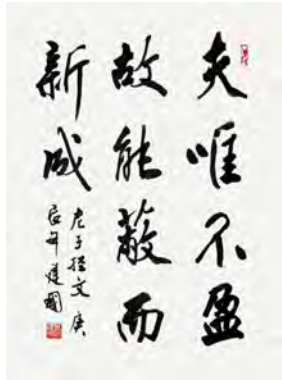 夫唯不盈
故能蔽而
新成
老子经文庚
辰年建国